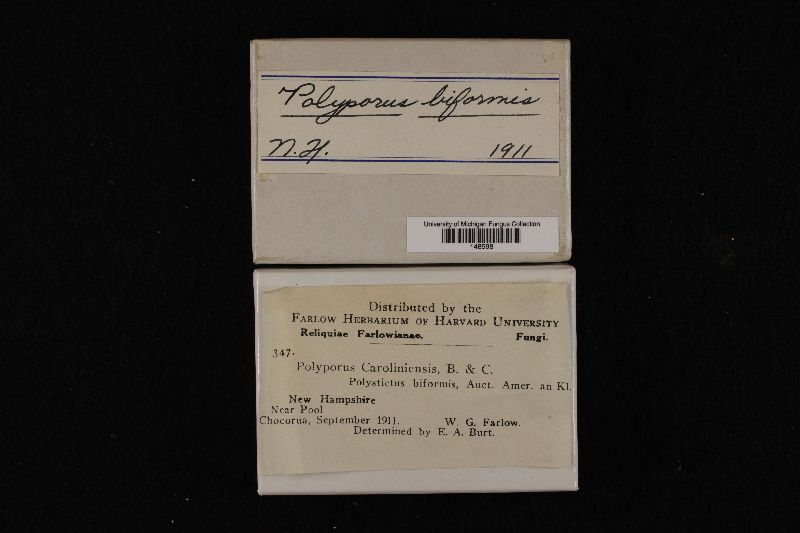 Polyporus biformis
N.H. 1911
University of Michigan Fungus Collection
148598
Distributed by the
FARLOW HERBARIUM OF HARVARD UNIVERSITY
Reliquiae Farlowianae. Fungi.
347.
Polyporus Caroliniensis, B. & C.
Polystictus biformis, Auct. Amer. an Kl.
New Hampshire
Near Pool
Chocorua, September 1911. W. G. Farlow.
Determined by E. A. Burt.